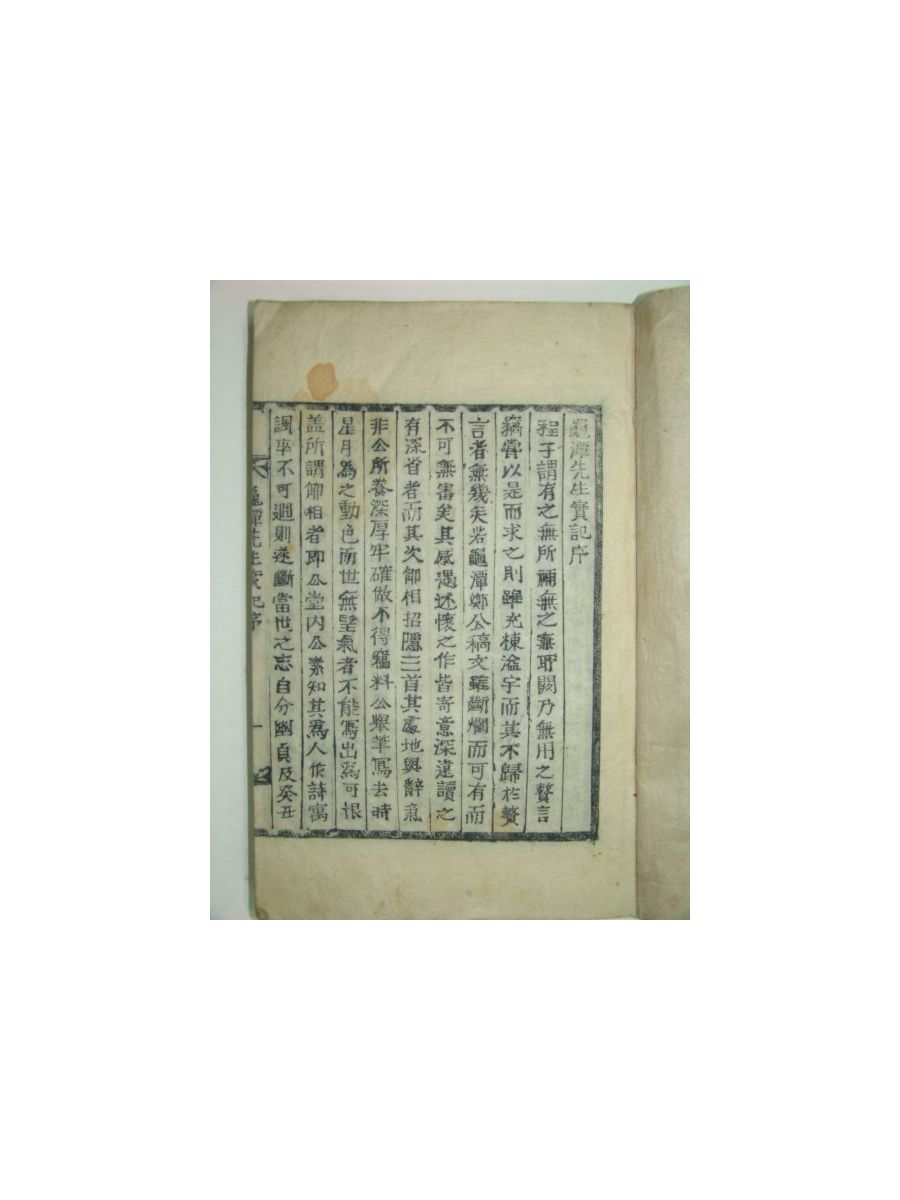 龜潭先生實記序
程子謂有之無所補無之無所闕乃無用之贅言
竊嘗以是而求之則雖充棟溢宇而其不歸於贅
言者無幾矣若龜潭鄭公稿文雖斷爛而可有而
不可無審矣其感遇述懷之作皆寄意深遠讀之
有深省者而其次卿相招隱三首其處地與辭氣
非公所養深厚牢確做不得竊料公擧筆寫去時
星月爲之動色而世無望氣者不能寫出爲可恨
盖所謂卿相者卽公堂內公素知其爲人作詩寓
諷卒不可迴則遂斷當世之志自分幽貞及癸丑
龜潭先生實記序 一